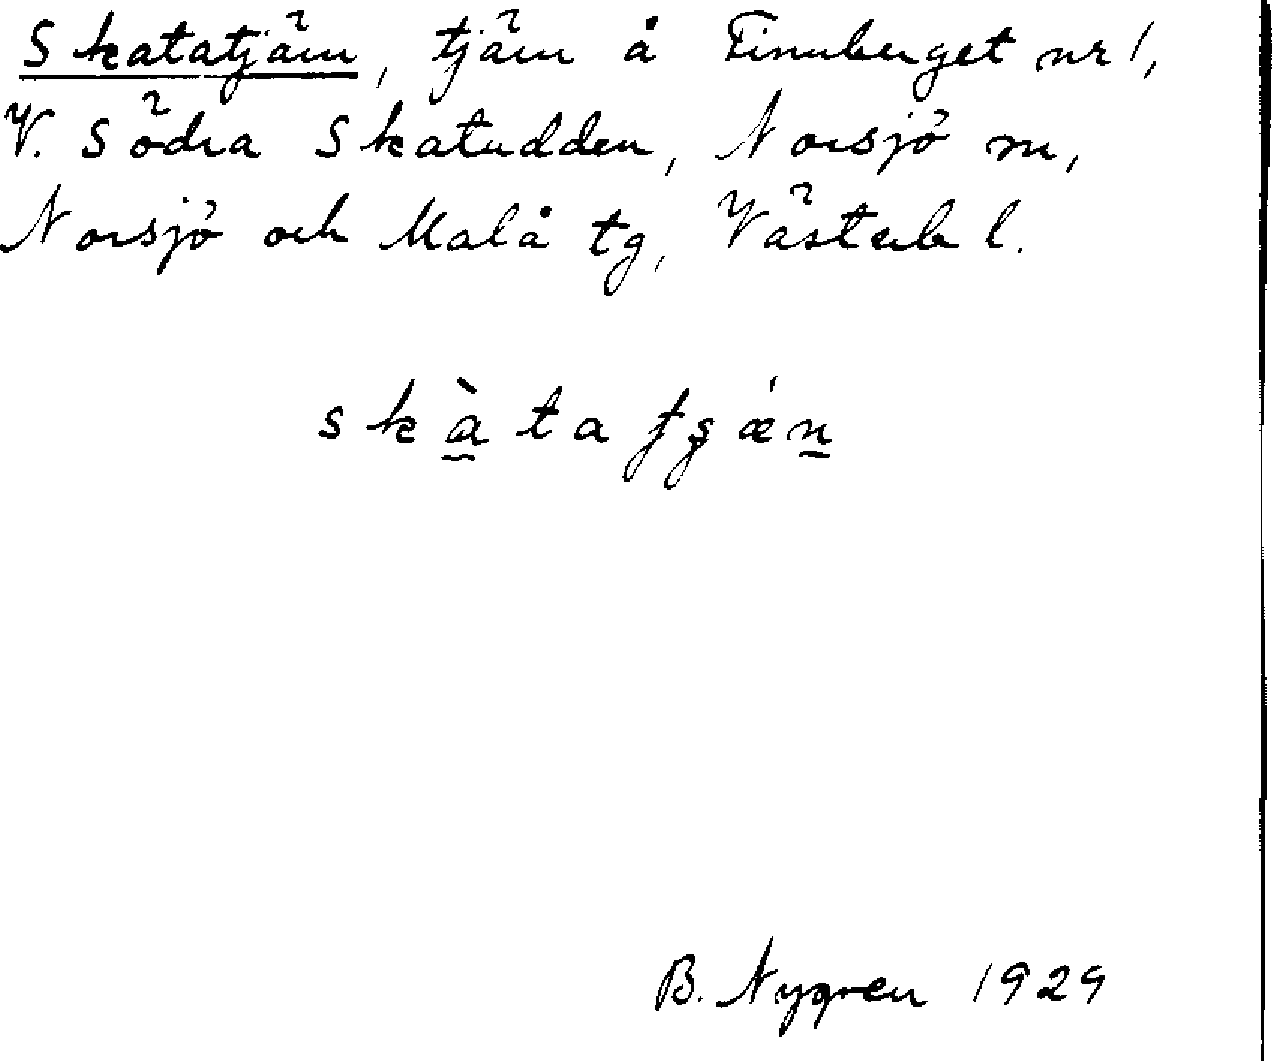 Skatatjärn, tjärn å Finnberget nr 1,
V. Södra Skatudden, Norsjö sn,
Norsjö och Malå tg, Västerb l.
skàtatʃǽn
B. Nygren 1929